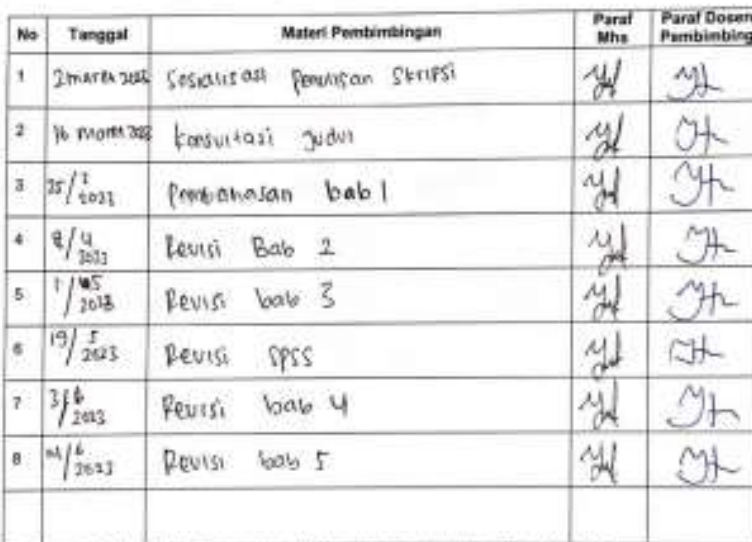 No Tanggal Materi Pembimbingan Paraf Mhs Paraf Dosen Pembimbing
1 2 maret Sosialisasi Penulisan Skripsi
2 16 maret Konsultasi Judul
3 25/3 2023 Pembahasan bab 1
4 8/4 2023 Revisi Bab 2
5 1/5 2023 Revisi bab 3
6 19/5 2023 Revisi SPSS
7 3/6 2023 Revisi bab 4
8 /6 2023 Revisi bab 5